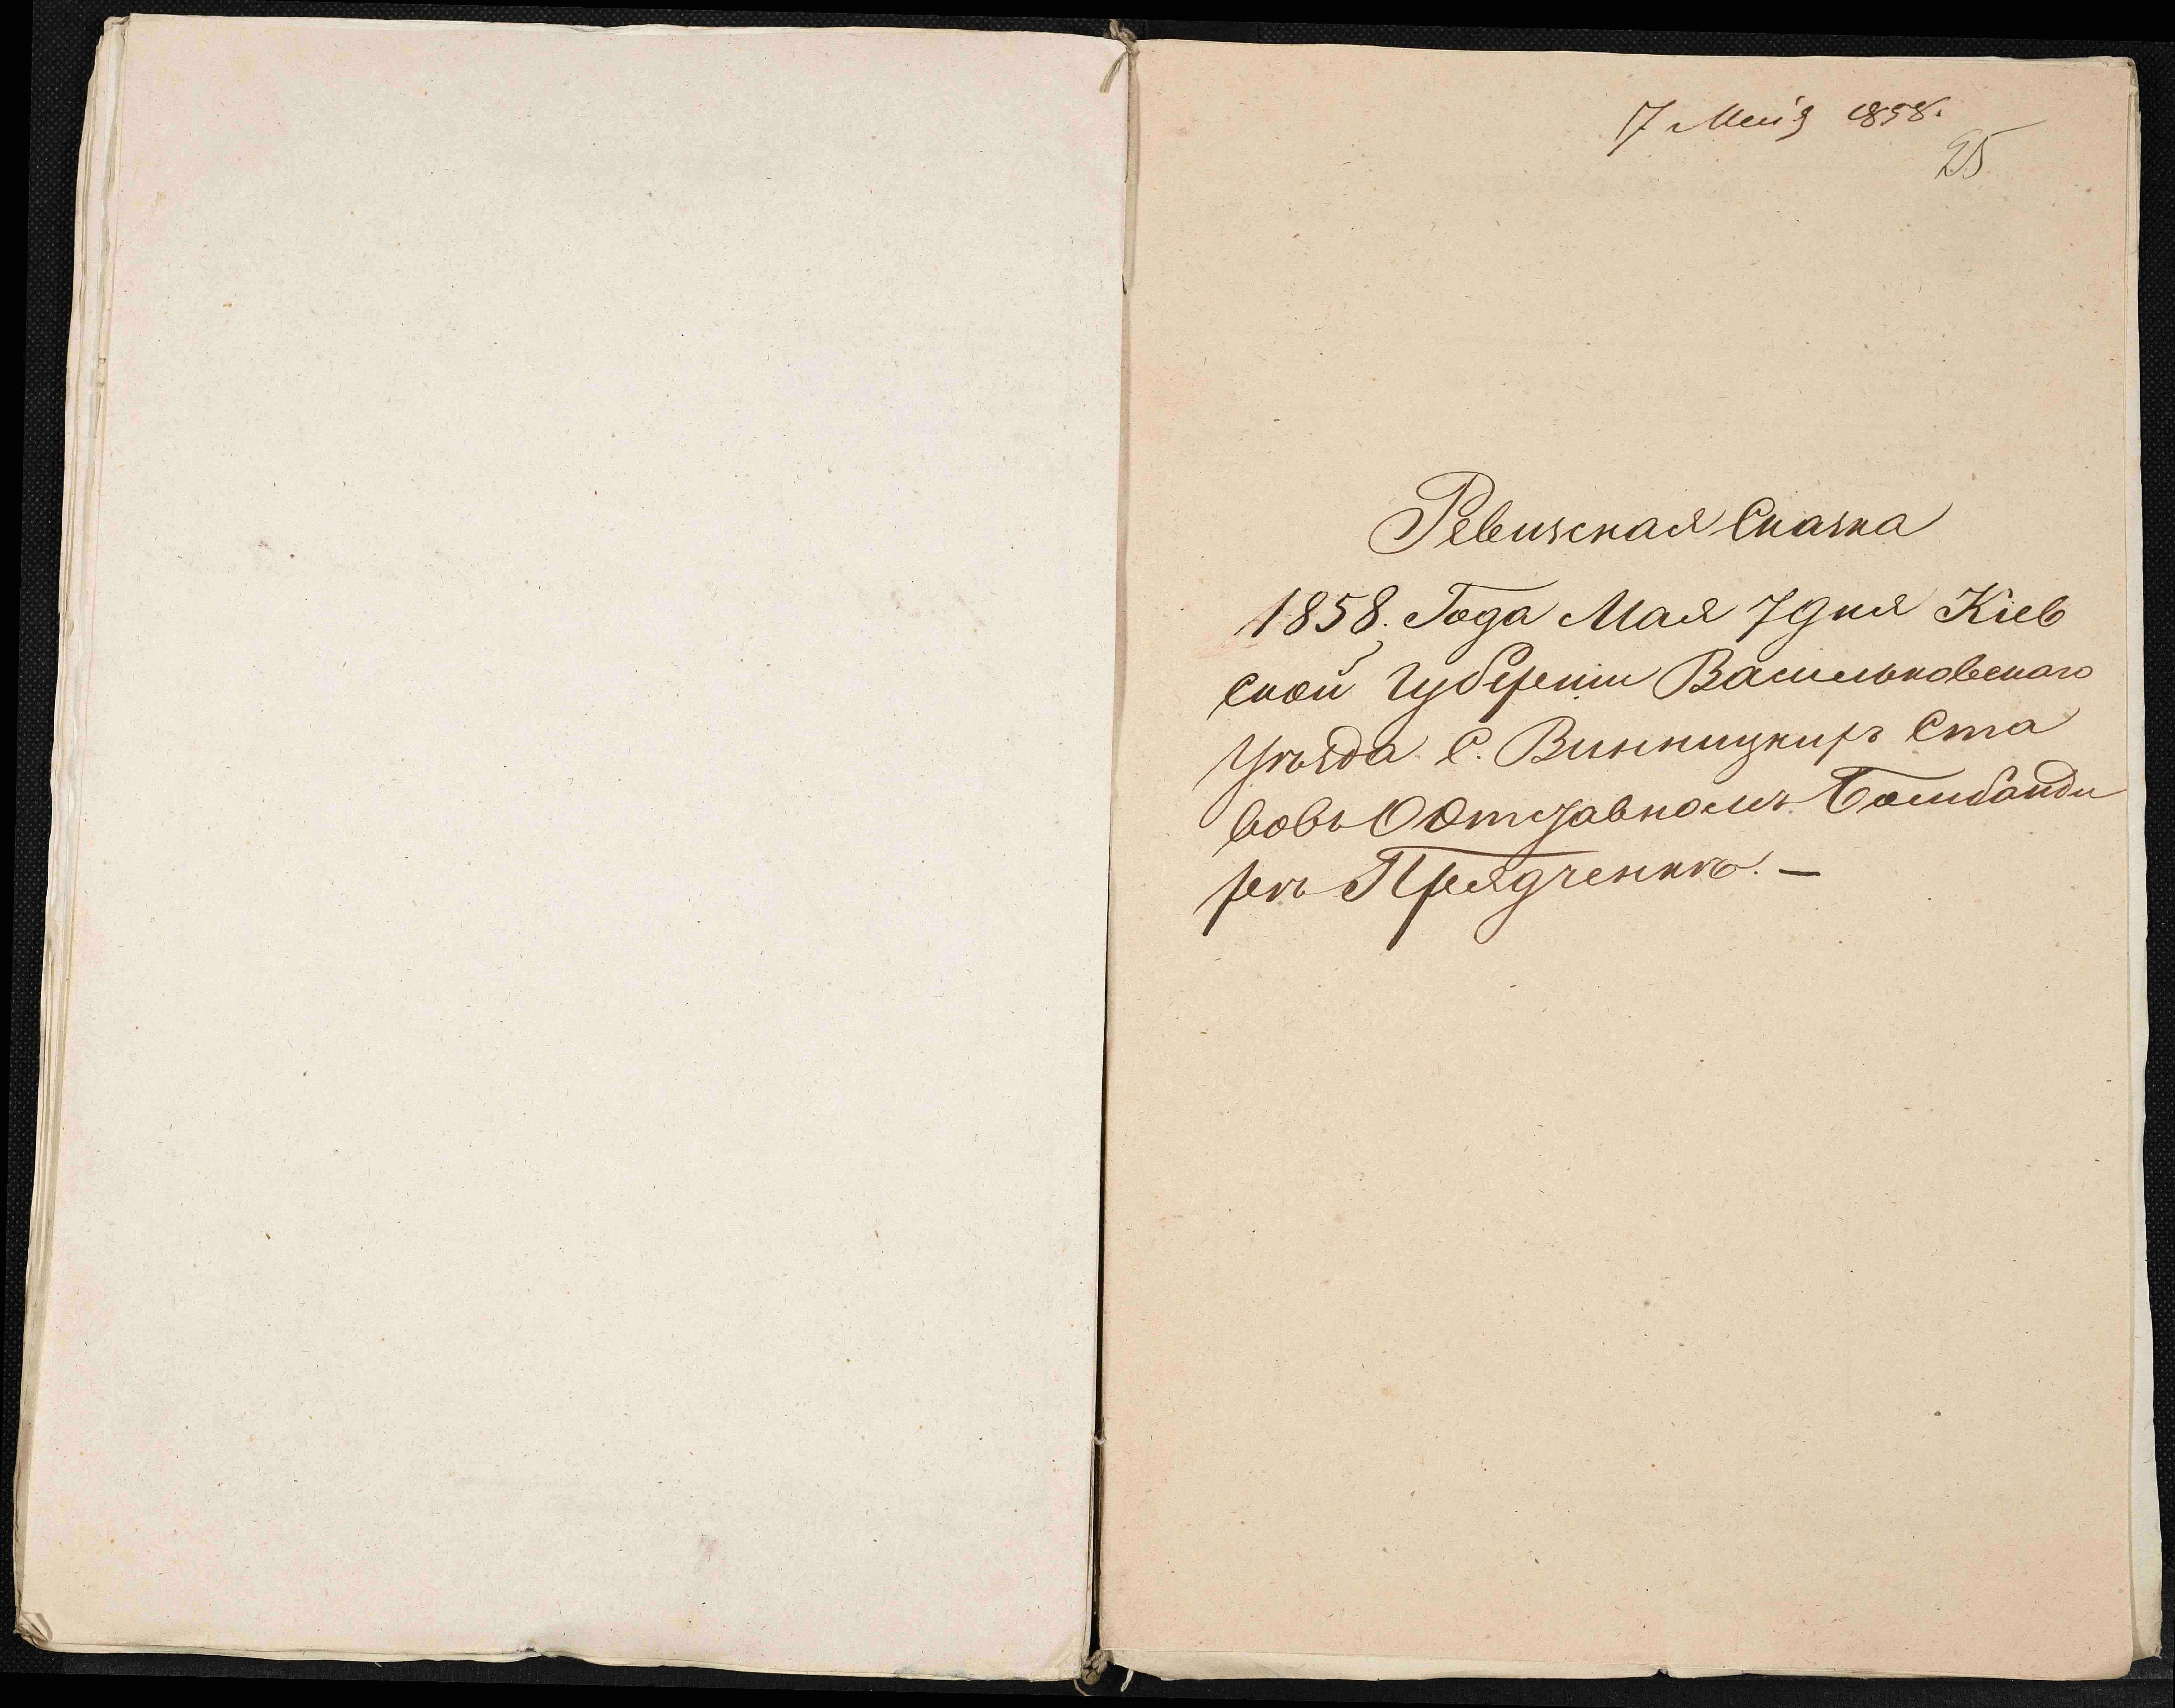 7 Мая 1858.
25
Ревизская Сказка
1858. Года Мая 7 дня Кіев
ской Губерніи Васильковскаго
Уѣзда С. Винницкихъ Ста
вовъ О Отставномъ Бомбанди
рѣ Прядченкѣ. —